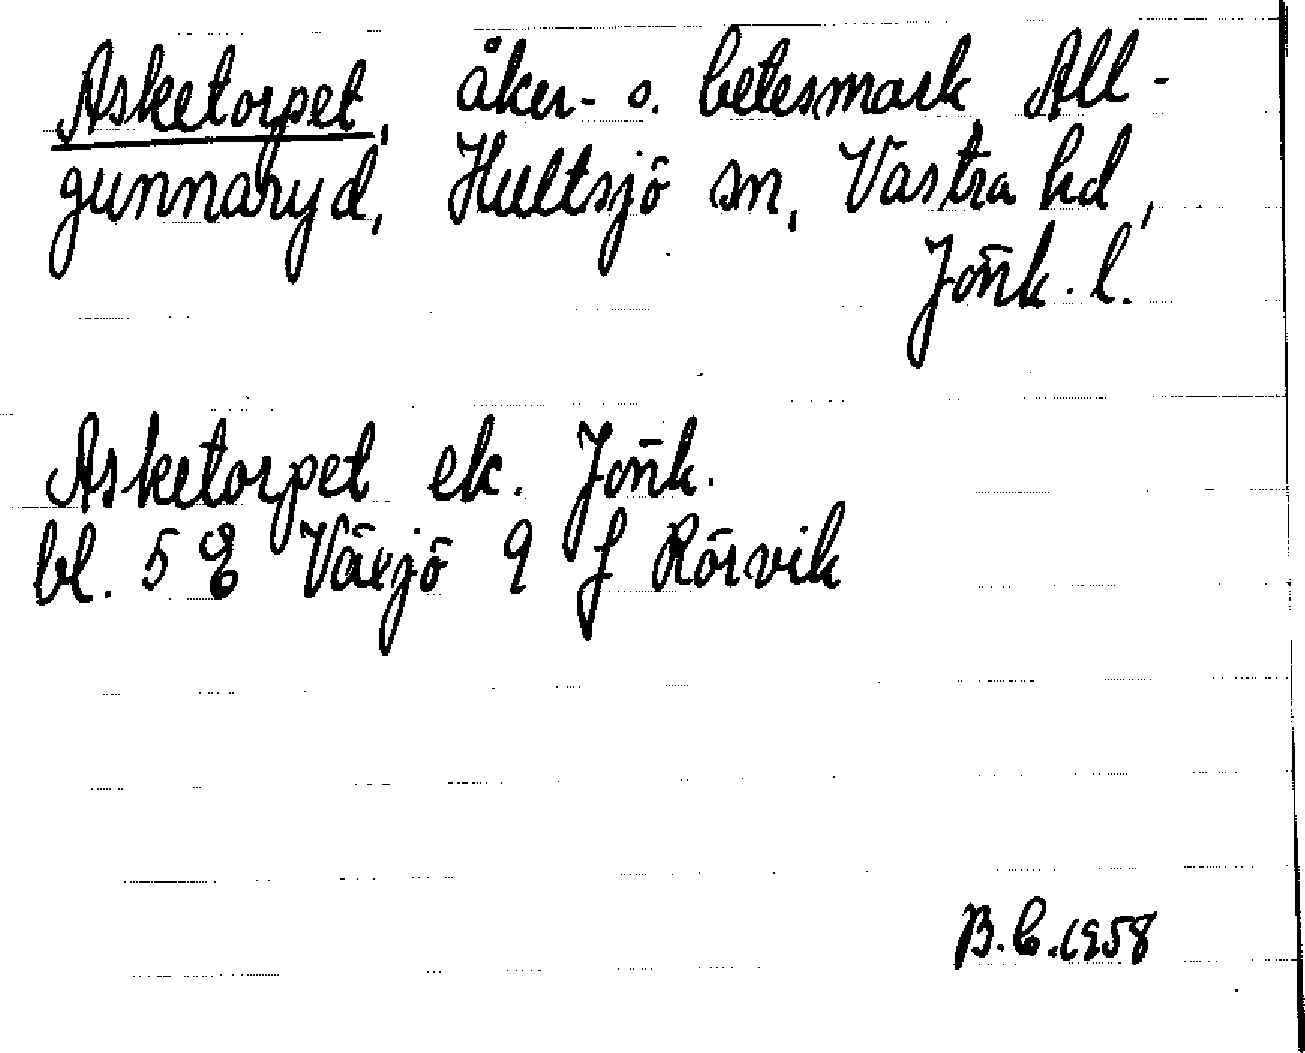 Asketorpet, åker- o. betesmark, All-
gunnaryd, Hultsjö sn, Västra hd,
Jönk. l.
Asketorpet ek. Jönk.
bl. 5 E Växjö 9 f Rörvik
B.C. 1958